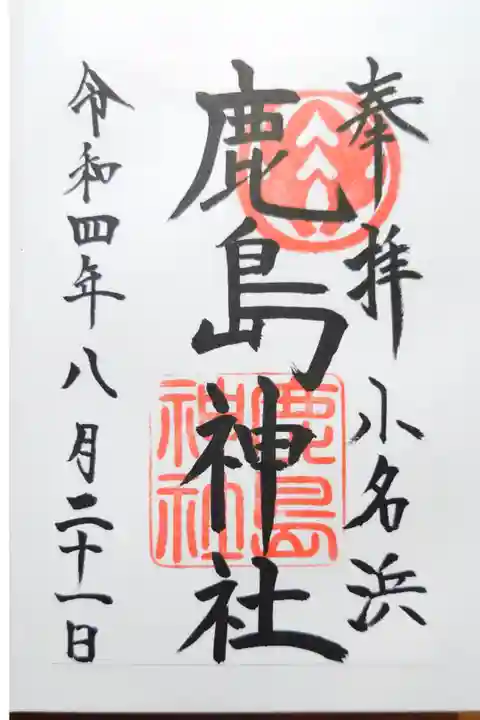 奉拝 小名浜
鹿島神社
鹿島
神社
令和四年八月二十一日